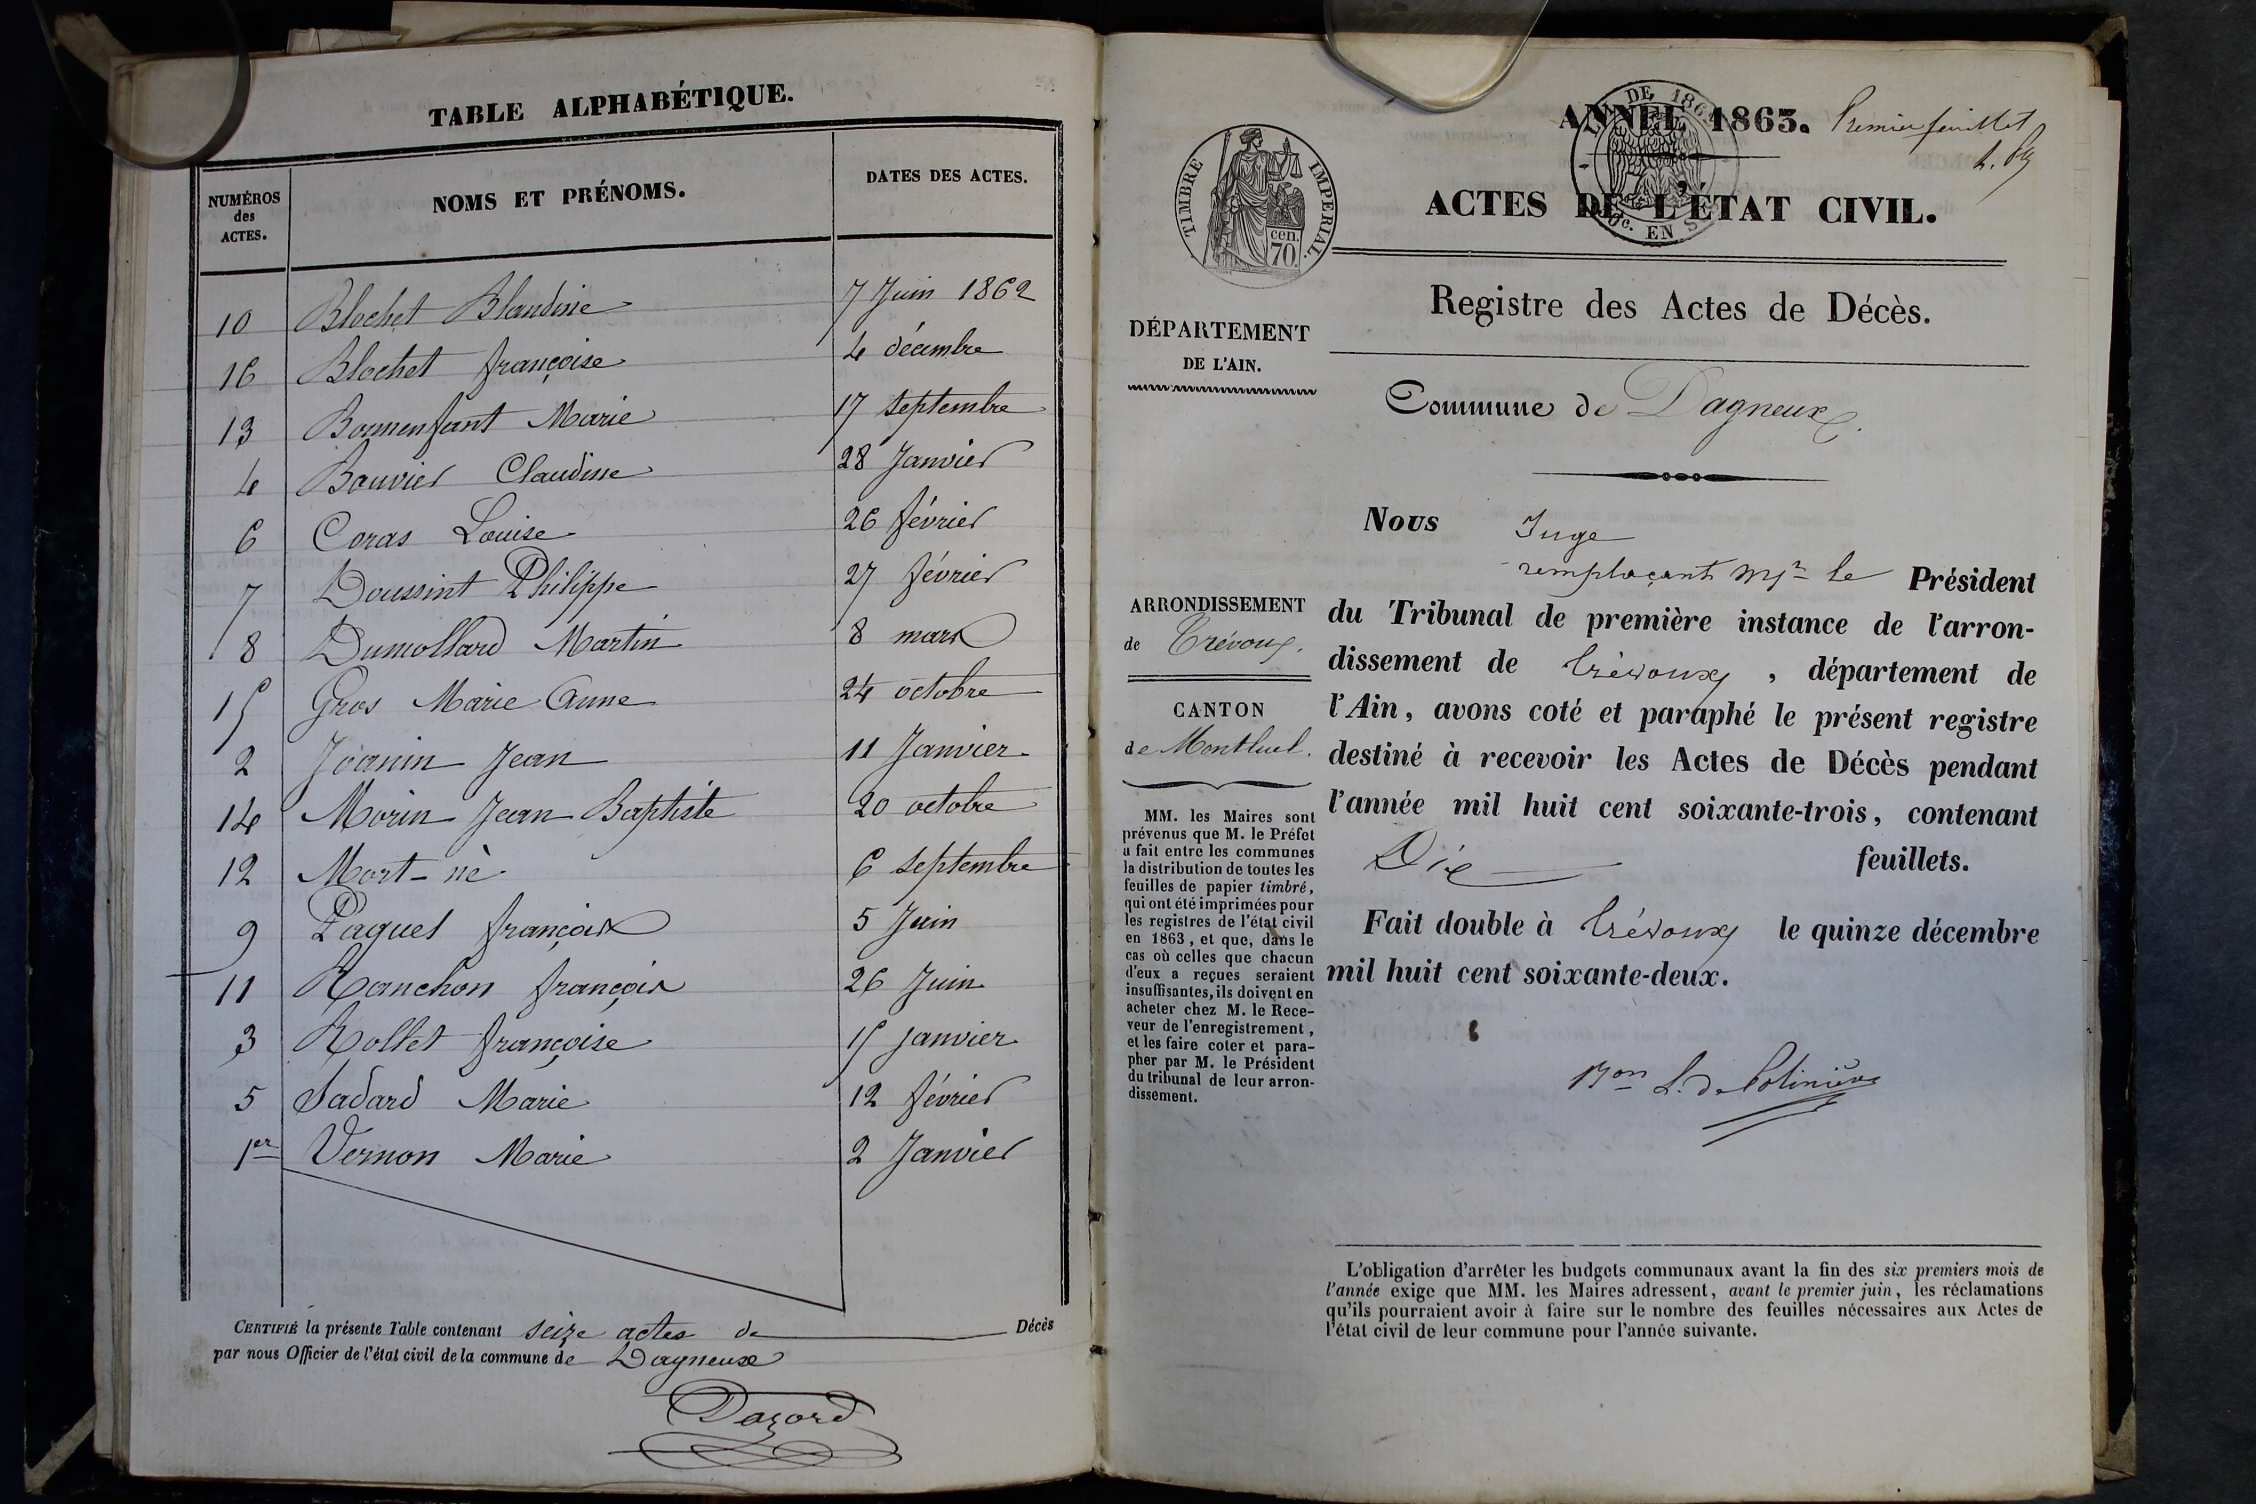 TABLE ALPHABÉTIQUE.
NUMÉROS des ACTES. NOMS ET PRÉNOMS. DATES DES ACTES.
10 Blochet Blandine 7 Juin 1862
16 Blochet françoise 4 décembre
13 Bonnenfant Marie 17 septembre
4 Bouvier Claudine 28 Janvier
6 Coras Louise 26 février
7 Doussint Philippe 27 février
8 Dumollard Martin 8 mars
15 Gros Marie Anne 24 octobre
2 Joanin Jean 11 Janvier
14 Morin Jean Baptiste 20 octobre
12 Mort-né 6 septembre
9 Paquet françois 5 Juin
11 Ranchon françois 26 Juin
3 Rollet françoise 15 janvier
5 Sadard Marie 12 février
1er Vernon Marie 2 Janvier
CERTIFIÉ la présente Table contenant seize actes de Décès
par nous Officier de l'état civil de la commune de Dagneux
Dazord
TIMBRE IMPÉRIAL.
cen.
70
ANNÉE 1863. Premier feuillet
ACTES DE L'ÉTAT CIVIL.
Registre des Actes de Décès.
DÉPARTEMENT
DE L'AIN.
Commune de Dagneux.
ARRONDISSEMENT
de Trévoux.
CANTON
de Montluel.
MM. les Maires sont
prévenus que M. le Préfet
a fait entre les communes
la distribution de toutes les
feuilles de papier timbré,
qui ont été imprimées pour
les registres de l'état civil
en 1863, et que, dans le
cas où celles que chacun
d'eux a reçues seraient
insuffisantes, ils doivent en
acheter chez M. le Rece-
veur de l'enregistrement,
et les faire coter et para-
pher par M. le Président
du tribunal de leur arron-
dissement.
Nous Juge
remplaçant Mr le Président
du Tribunal de première instance de l'arron-
dissement de Trévoux, département de
l'Ain, avons coté et paraphé le présent registre
destiné à recevoir les Actes de Décès pendant
l'année mil huit cent soixante-trois, contenant
Dix feuillets.
Fait double à Trévoux le quinze décembre
mil huit cent soixante-deux.
Bon L. de Polinière
L'obligation d'arrêter les budgets communaux avant la fin des six premiers mois de
l'année exige que MM. les Maires adressent, avant le premier juin, les réclamations
qu'ils pourraient avoir à faire sur le nombre des feuilles nécessaires aux Actes de
l'état civil de leur commune pour l'année suivante.